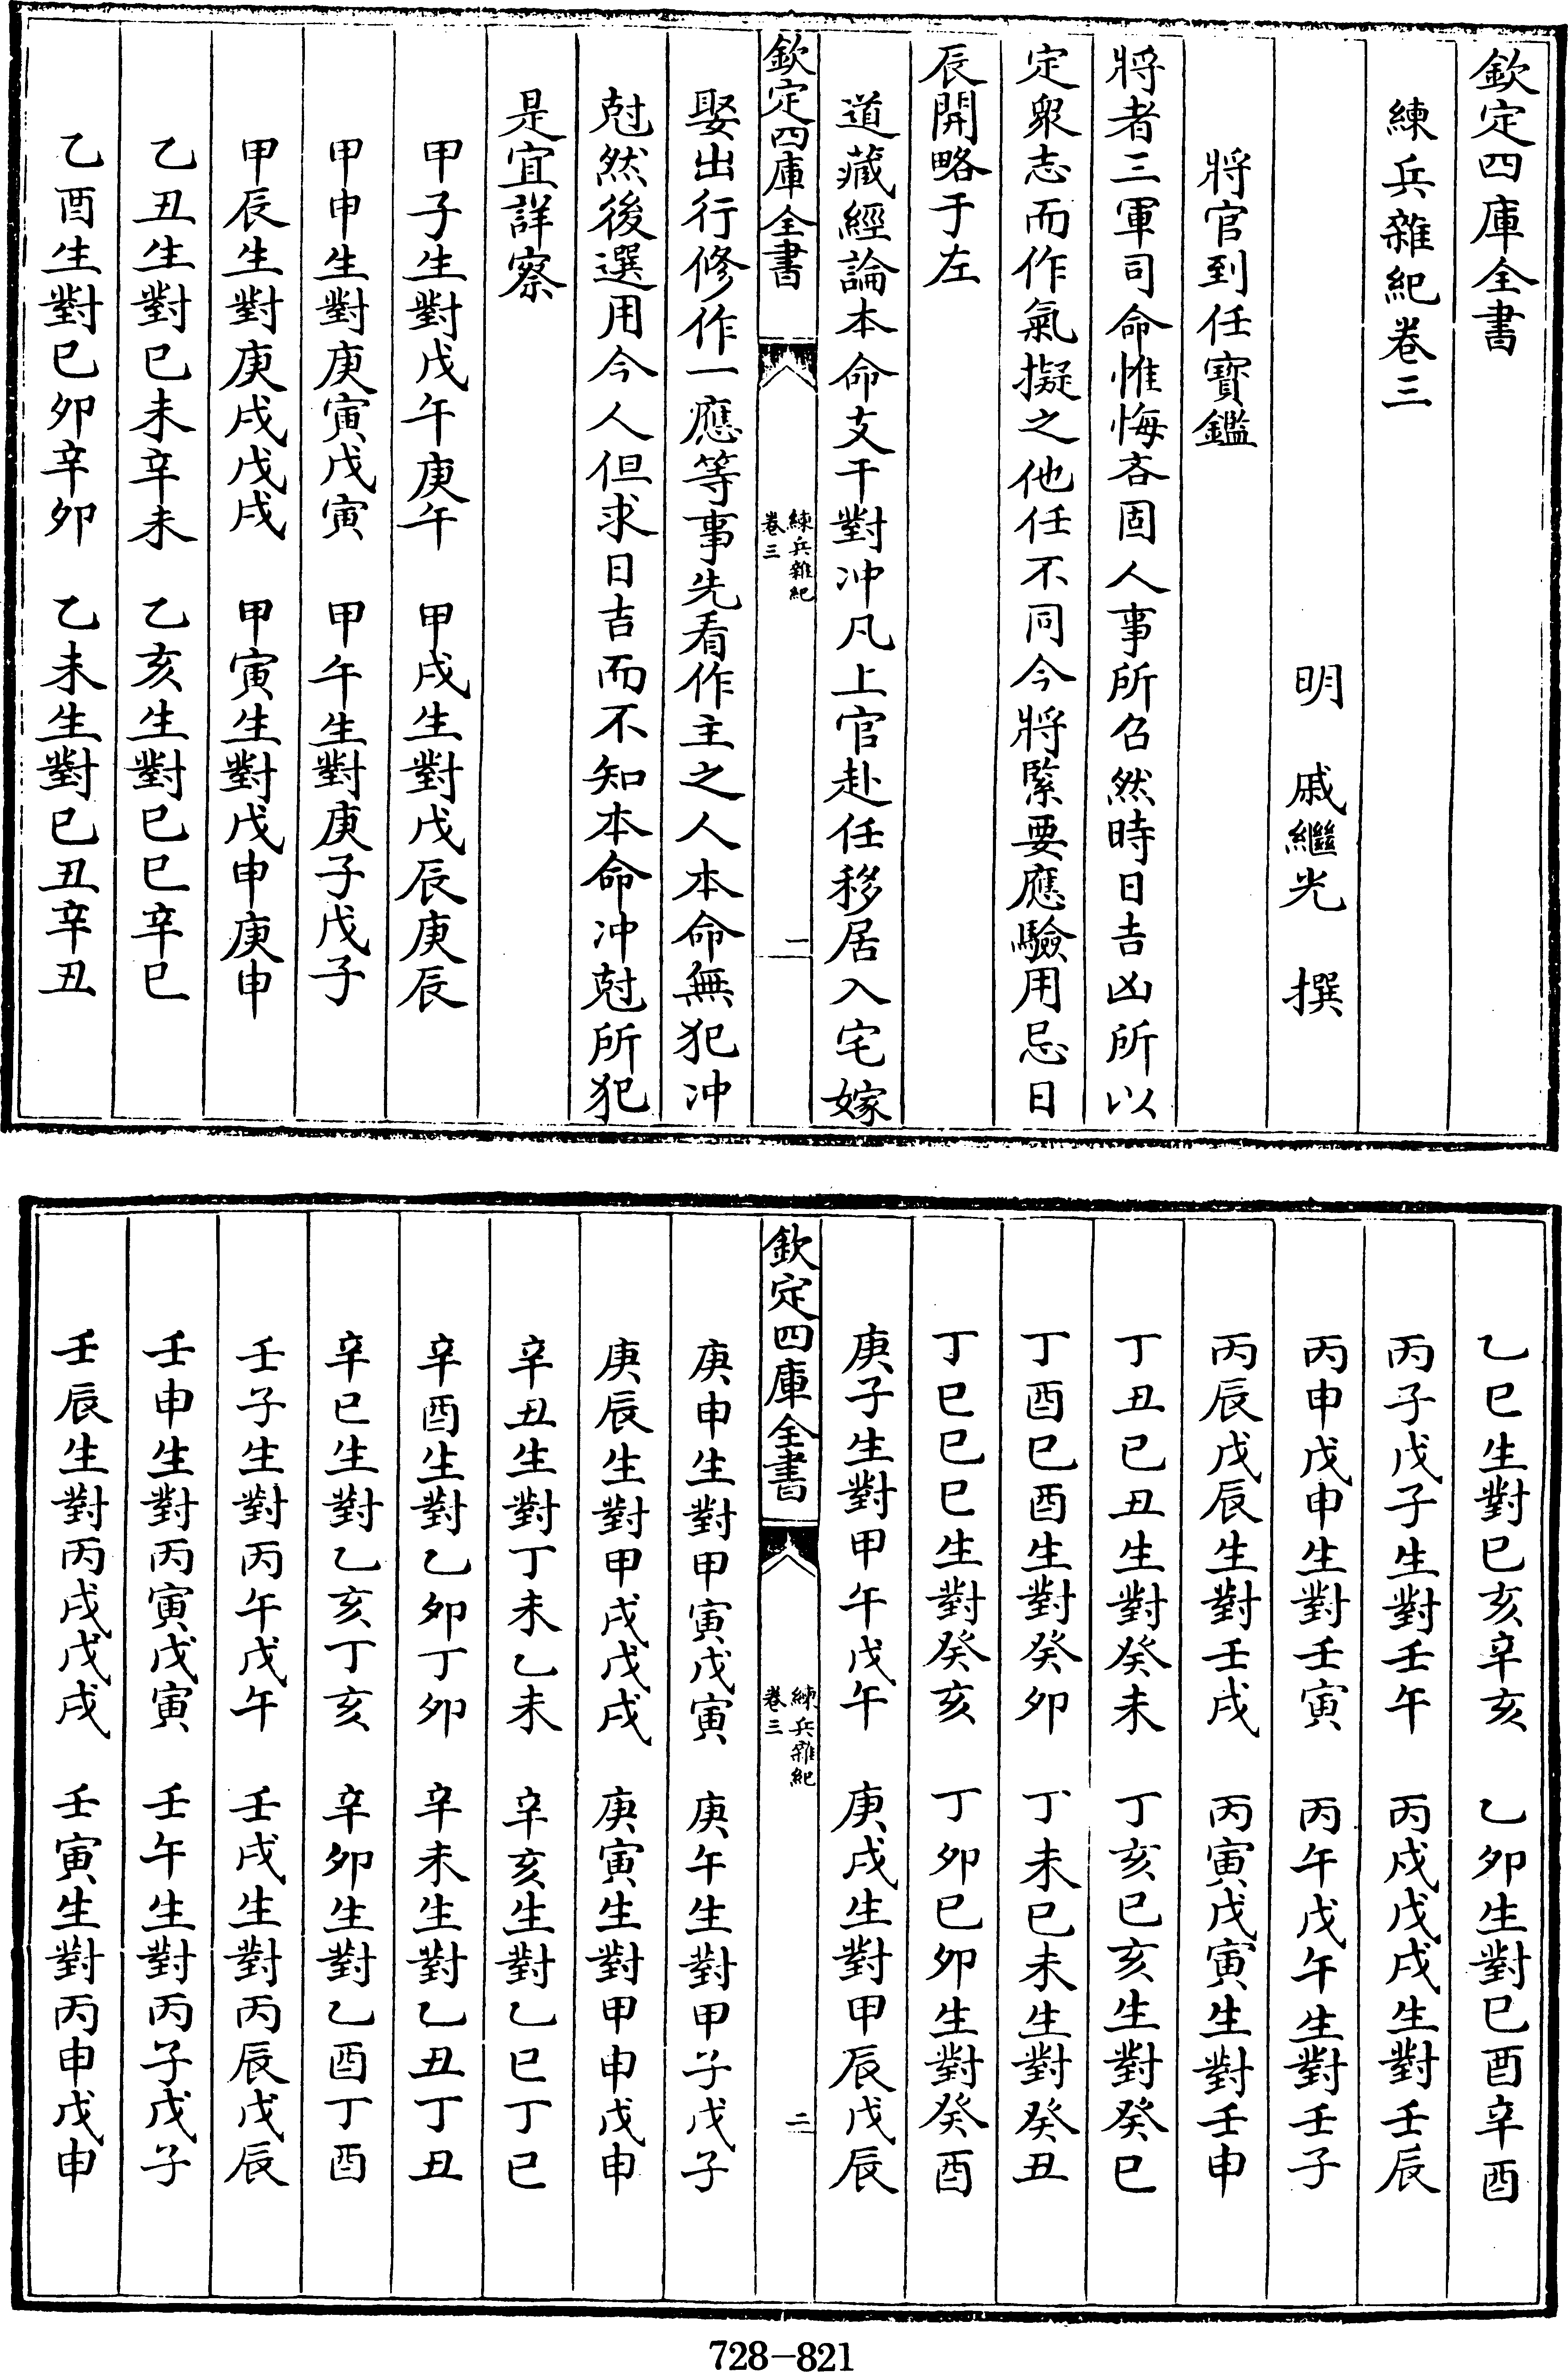 欽定四庫全書
練兵雜紀卷三
明 戚繼光 撰
將官到任寶鑑
將者三軍司命惟悔吝固人事所召然時日吉凶所以
定衆志而作氣擬之他任不同今將緊要應驗用忌日
辰開略于左
道藏經論本命支干對冲凡上官赴任移居入宅嫁
欽定四庫全書 練兵雜紀 卷三 一
娶出行修作一應等事先看作主之人本命無犯冲
尅然後選用今人但求日吉而不知本命冲尅所犯
是宜詳察
甲子生對戊午庚午 甲戌生對戊辰庚辰
甲申生對庚寅戊寅 甲午生對庚子戊子
甲辰生對庚戌戊戌 甲寅生對戊申庚申
乙丑生對巳未辛未 乙亥生對巳巳辛巳
乙酉生對巳夘辛夘 乙未生對巳丑辛丑
乙巳生對巳亥辛亥 乙夘生對巳酉辛酉
丙子戊子生對壬午 丙戌戊戌生對壬辰
丙申戊申生對壬寅 丙午戊午生對壬子
丙辰戊辰生對壬戌 丙寅戊寅生對壬申
丁丑巳丑生對癸未 丁亥巳亥生對癸巳
丁酉巳酉生對癸夘 丁未巳未生對癸丑
丁巳巳巳生對癸亥 丁夘巳夘生對癸酉
庚子生對甲午戊午 庚戌生對甲辰戊辰
欽定四庫全書 練兵雜紀 卷三 二
庚申生對甲寅戊寅 庚午生對甲子戊子
庚辰生對甲戌戊戌 庚寅生對甲申戊申
辛丑生對丁未乙未 辛亥生對乙巳丁巳
辛酉生對乙夘丁夘 辛未生對乙丑丁丑
辛巳生對乙亥丁亥 辛夘生對乙酉丁酉
壬子生對丙午戊午 壬戌生對丙辰戊辰
壬申生對丙寅戊寅 壬午生對丙子戊子
壬辰生對丙戌戊戌 壬寅生對丙申戊申
728-821